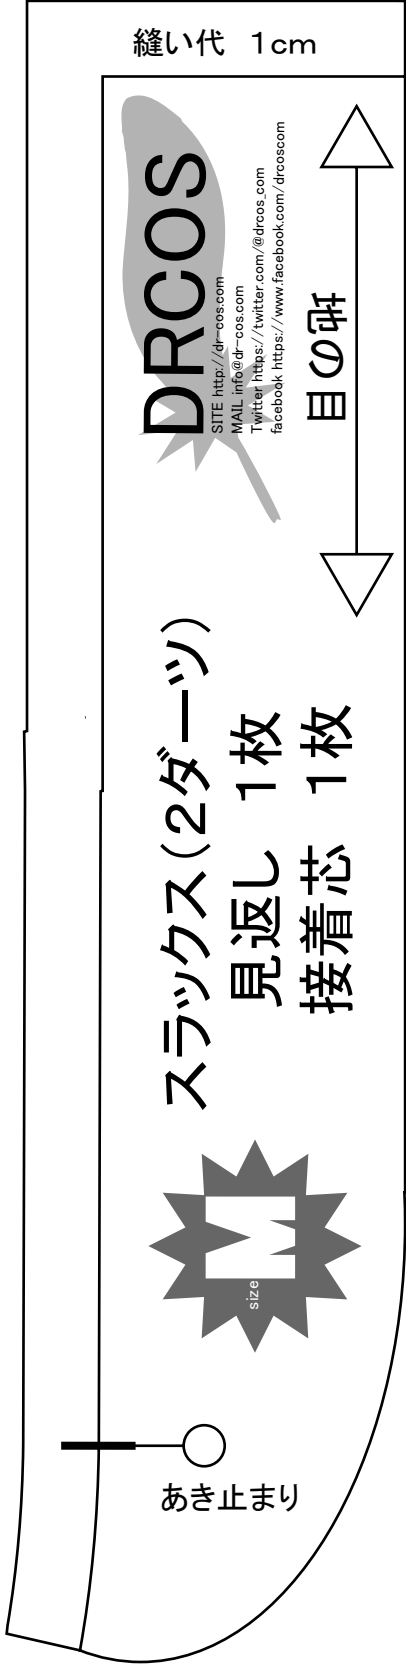 縫い代　1cm
DRCOS
SITE http://dr-cos.com
MAIL info@dr-cos.com
Twitter https://twitter.com/@drcos_com
facebook https://www.facebook.com/drcoscom
地の目
スラックス(2ダーツ)
見返し　1枚
接着芯　1枚
size M
あき止まり